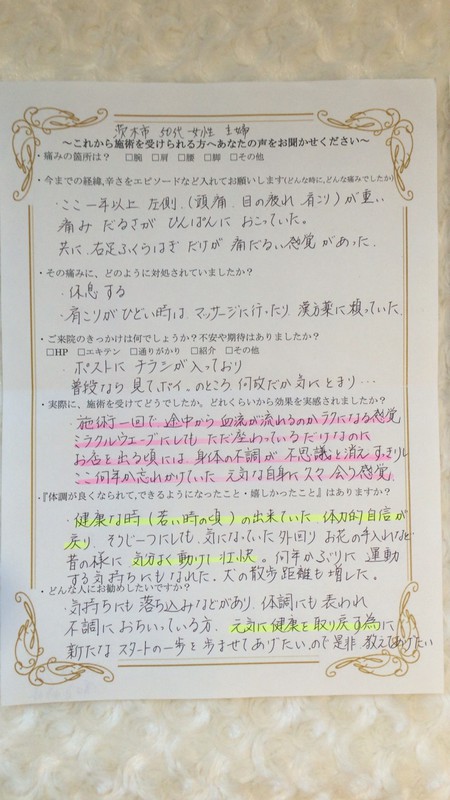 茨木市 50代 女性 主婦
～これから施術を受けられる方へあなたの声をお聞かせください～
・痛みの箇所は？ □腕 □肩 □腰 □脚 □その他
・今までの経緯、辛さをエピソードなど入れてお願いします(どんな時に、どんな痛みでしたか)
・ここ一年以上 左側（頭痛、目の疲れ 肩こり）が重い
痛み だるさが ひんぱんに おこっていた。
共に、右足ふくらはぎ だけが 痛だるい感覚 があった。
・その痛みに、どのように対処されていましたか？
・休息する
・肩こりがひどい時は、マッサージに行ったり、漢方薬に頼っていた。
・ご来院のきっかけは何でしょうか？不安や期待はありましたか？
□HP □エキテン □通りがかり □紹介 □その他
・ポストに チラシが入っており
普段なら 見て、ポイ。のところ 何故だか気にとまり…
・実際に、施術を受けてどうでした。どれくらいから効果を実感されましたか？
・施術一回で 途中から 血流が流れるのか ラクになる感覚
ミラクルウエーブにしても ただ座わっているだけなのに
お店を出る頃には、身体の不調が 不思議と消え すっきりし
ここ何年か忘れかけていた 元気な自身に久々 会う感覚。
・『体調が良くなられて、できるようになったこと・嬉しかったこと』はありますか？
・健康な時（若い時の頃）の出来ていた 体力的自信が
戻り、そうじ一つにしても、気になっていた外回り お花の手入れなど
昔の様に 気分よく動けて 壮快。何年かぶりに 運動
する気持ちにもなれた。犬の散歩距離も増した。
・どんな人にお勧めしたいですか？
・気持ちにも 落ち込みなどがあり、体調にも 表われ
不調におちいっている方、元気に健康を取り戻す為に
新たな スタートの一歩を 歩ませてあげたいので 是非 教えてあげたい